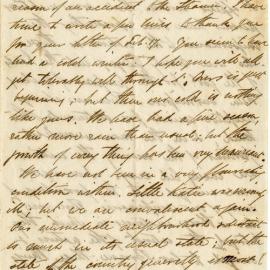 reason of an accident to the Steamer, I have
time to write a few lines to thank you
for your letter of Feb. You seem to have
had a cold winter. I hope you will all
get tolerably well through it. Ours is just
beginning; but then our cold is nothing
like yours. We have had a fine season,
rather more rain than usual; but the
growth of every thing has been very
We have not been in a very flourishing
condition within. Little Katie
ill; but we are convalescent again.
Our immediate neighbourhood
is much in its usual state; but the
state of the country generally is most